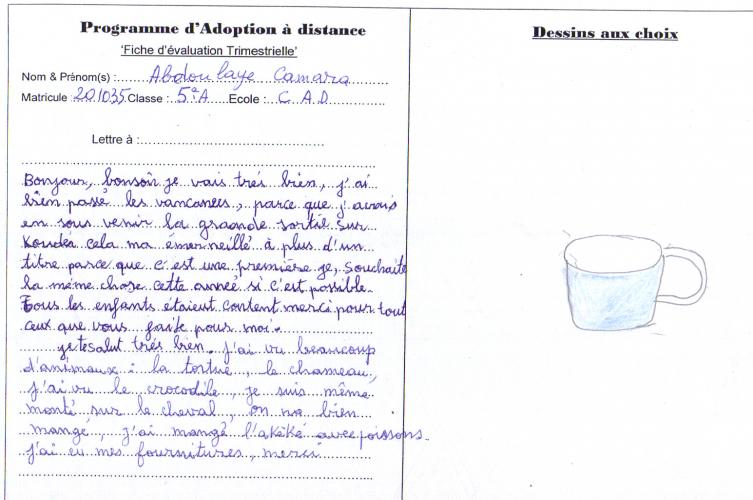 Programme d'Adoption à distance
'Fiche d'évaluation Trimestrielle'
Nom & Prénom(s) : Abdoulaye Camara
Matricule 201035 Classe : 5eA Ecole : C.A.D
Lettre à :
Bonjour, bonsoir je vais trés bien, j'ai
bien passé les vancances, parce que j'avais
en sous venir la graande sortie sur
Koudéa cela ma émerneillé à plus d'un
titre parce que c'est une première je, Souchaite
la même chose cette année si c'est possible.
Tous les enfants étaient content merci pour tout
ceux que vous faite pour moi.
je te salut trés bien. J'ai vu beaucoup
d'animaux : la tortue, le chameau,
j'ai vu le crocodile, je suis même
monté sur le cheval, on na bien
mangé, j'ai mangé l'akéké avec poissons
j'ai eu mes fournitures, merci
Dessins aux choix